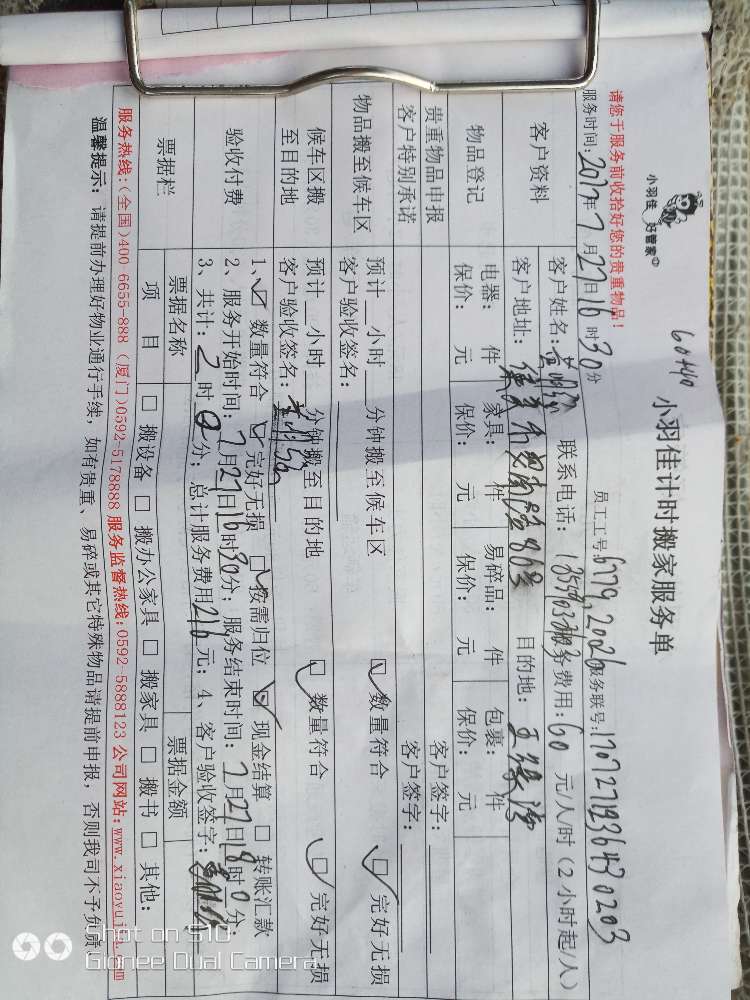 小羽佳 好管家
60440
小羽佳计时搬家服务单
请您于服务前收拾好您的贵重物品！
员工工号：6179, 2026 服务联号：170727193643 0203
服务时间：2017年7月27日16时30分
客户资料
客户姓名： 联系电话： 服务费用：60 元/人/时（2小时起/人）
客户地址： 目的地：
物品登记
电器： 件 家具： 件 易碎品： 件 包裹： 件
保价： 元 保价： 元 保价： 元 保价： 元
贵重物品申报 客户签字：
客户特别承诺 客户签字：
物品搬至候车区
预计__小时__分钟搬至候车区 ☑数量符合 ☑完好无损
客户验收签名：
候车区搬至目的地
预计__小时__分钟搬至目的地 ☑数量符合 ☑完好无损
客户验收签名：
验收付费
1、☑数量符合 ☑完好无损 ☑按需归位 ☑现金结算 □转账汇款
2、服务开始时间：7月27日16时30分；服务结束时间：7月27日18时0分
3、共计：2时0分；总计服务费用216元；4、客户验收签字：
票据栏
票据名称 票据金额
项目 □搬设备 □搬办公家具 □搬家具 □搬书 □其他：
服务热线：(全国)400 6655-888 (厦门)0592-5178888 服务监督热线：0592-5888123 公司网站：www.xiaoyujia.com
温馨提示：请提前办理好物业通行手续，如有贵重、易碎或其它特殊物品请提前申报，否则我司不予负责
Shot on S10
Gionee Dual Camera